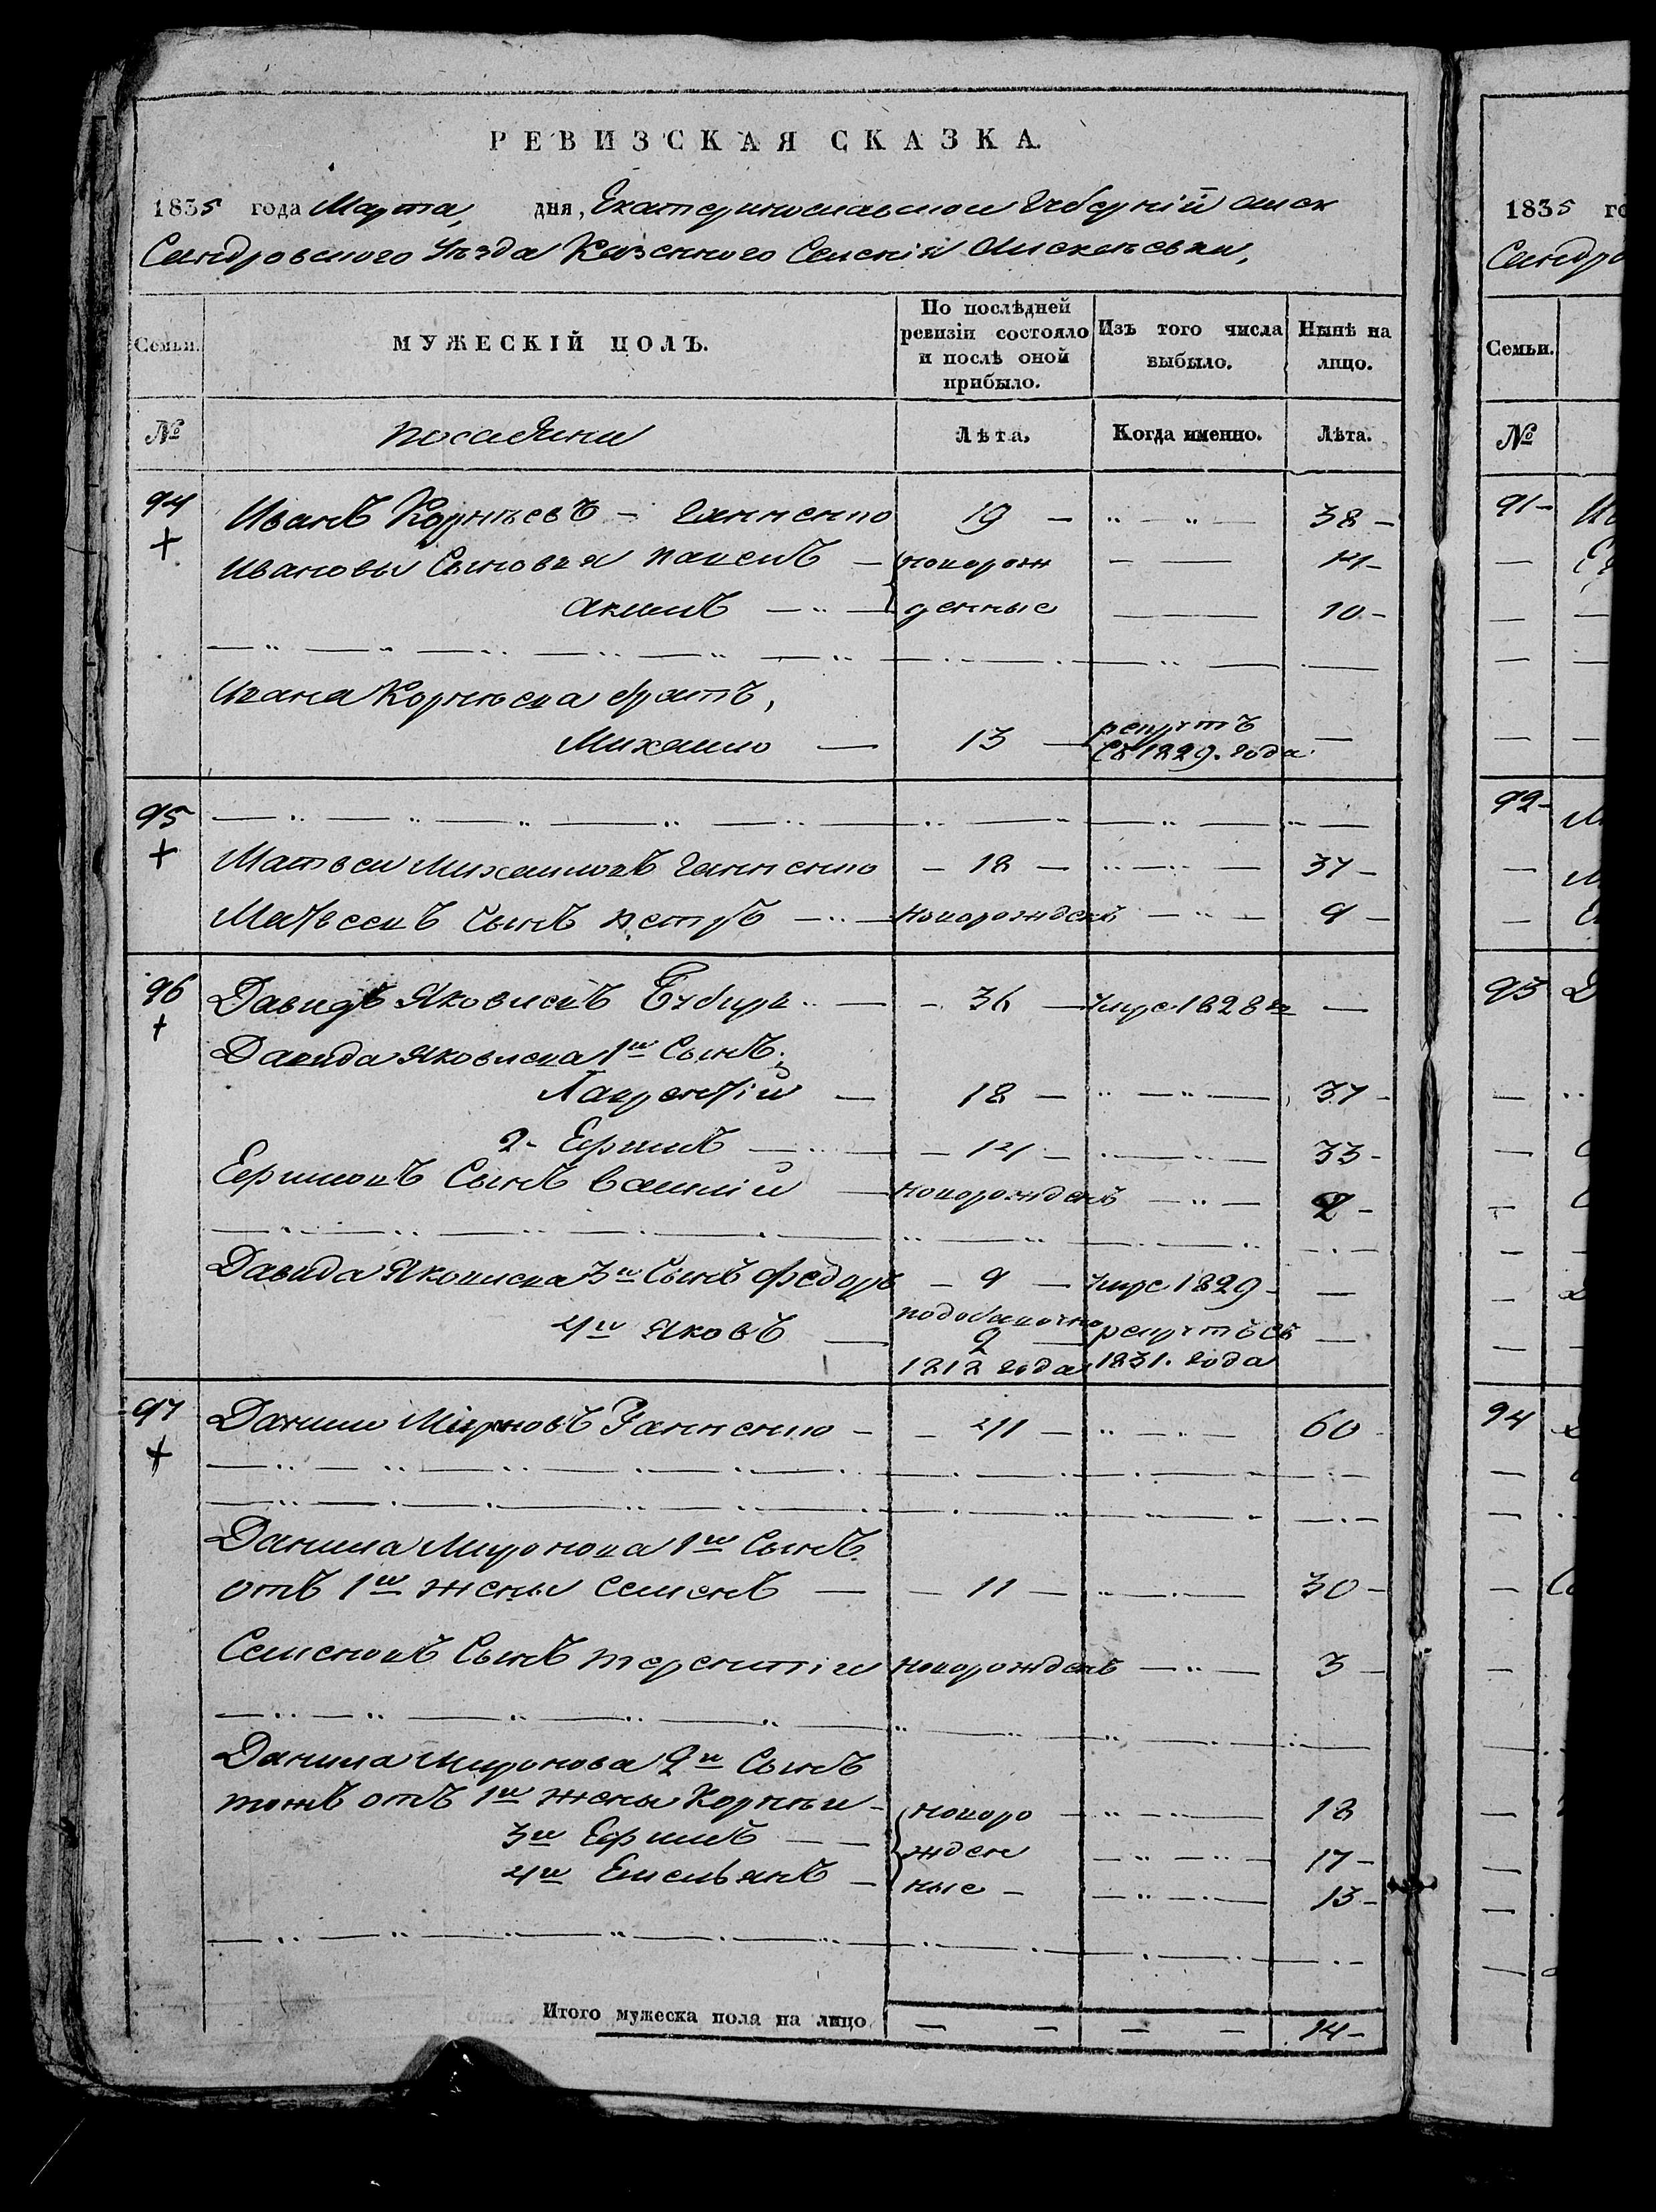 РЕВИЗСКАЯ СКАЗКА.
1835 года Марта, дня, Екатеринославской Губерніи алек
сандровского Уѣзда Казенного Селенія
Семьи. МУЖЕСКІЙ ПОЛЪ. По послѣдней ревизіи состояло и послѣ оной прибыло. Изъ того числа выбыло. Нынѣ на лицо.
№ Лѣта. Когда именно. Лѣта.
94 Иванъ Корнѣевъ – 19 – „ – „ – 38 –
Ивановы Сыновья Павелъ – новорож – — 14 –
акимъ – „ – денные — 10 –
Ивана Корнѣева братъ,
Михайло — 13 — рекрутъ съ 1829. года —
95
Матвей Михайловъ – 18 – 37 –
Матвеевъ Сынъ петръ – „ – новорожденъ – „ – 9 –
96 Давидъ Яковлевъ – 36 – умре 1828 —
Давида Яковлева 1й Сынъ,
Лаврентій — 18 – „ – „ – 37 –
2– Ефимъ – 14 – 33 –
Ефимовъ Сынъ василій — новорожденъ – „ – 2 –
Давида Яковлева 3й Сынъ федоръ – 9 – умре 1829 – —
4й Яковъ — 2 — рекрутъ съ —
1812 года 1831. года
97 Данило Мироновъ – – 41 – „ – „ – 60
Данила Миронова 1й Сынъ
отъ 1й жены Семенъ — – 11 – „ – „ – 30 –
Семеновъ Сынъ терентій новорожденъ – „ – 3 –
Данила Миронова 2й Сынъ
тожъ отъ 1й жены Корнѣй – новоро – „ – „ – 18
3й Ефимъ – – жден – „ – „ – 17 –
4й Емельянъ – ные – – „ – „ – 13 –
Итого мужеска пола на лицо – – – – 14 –
1835 го
сандро
Семьи.
№
91 –
92 –
93
94